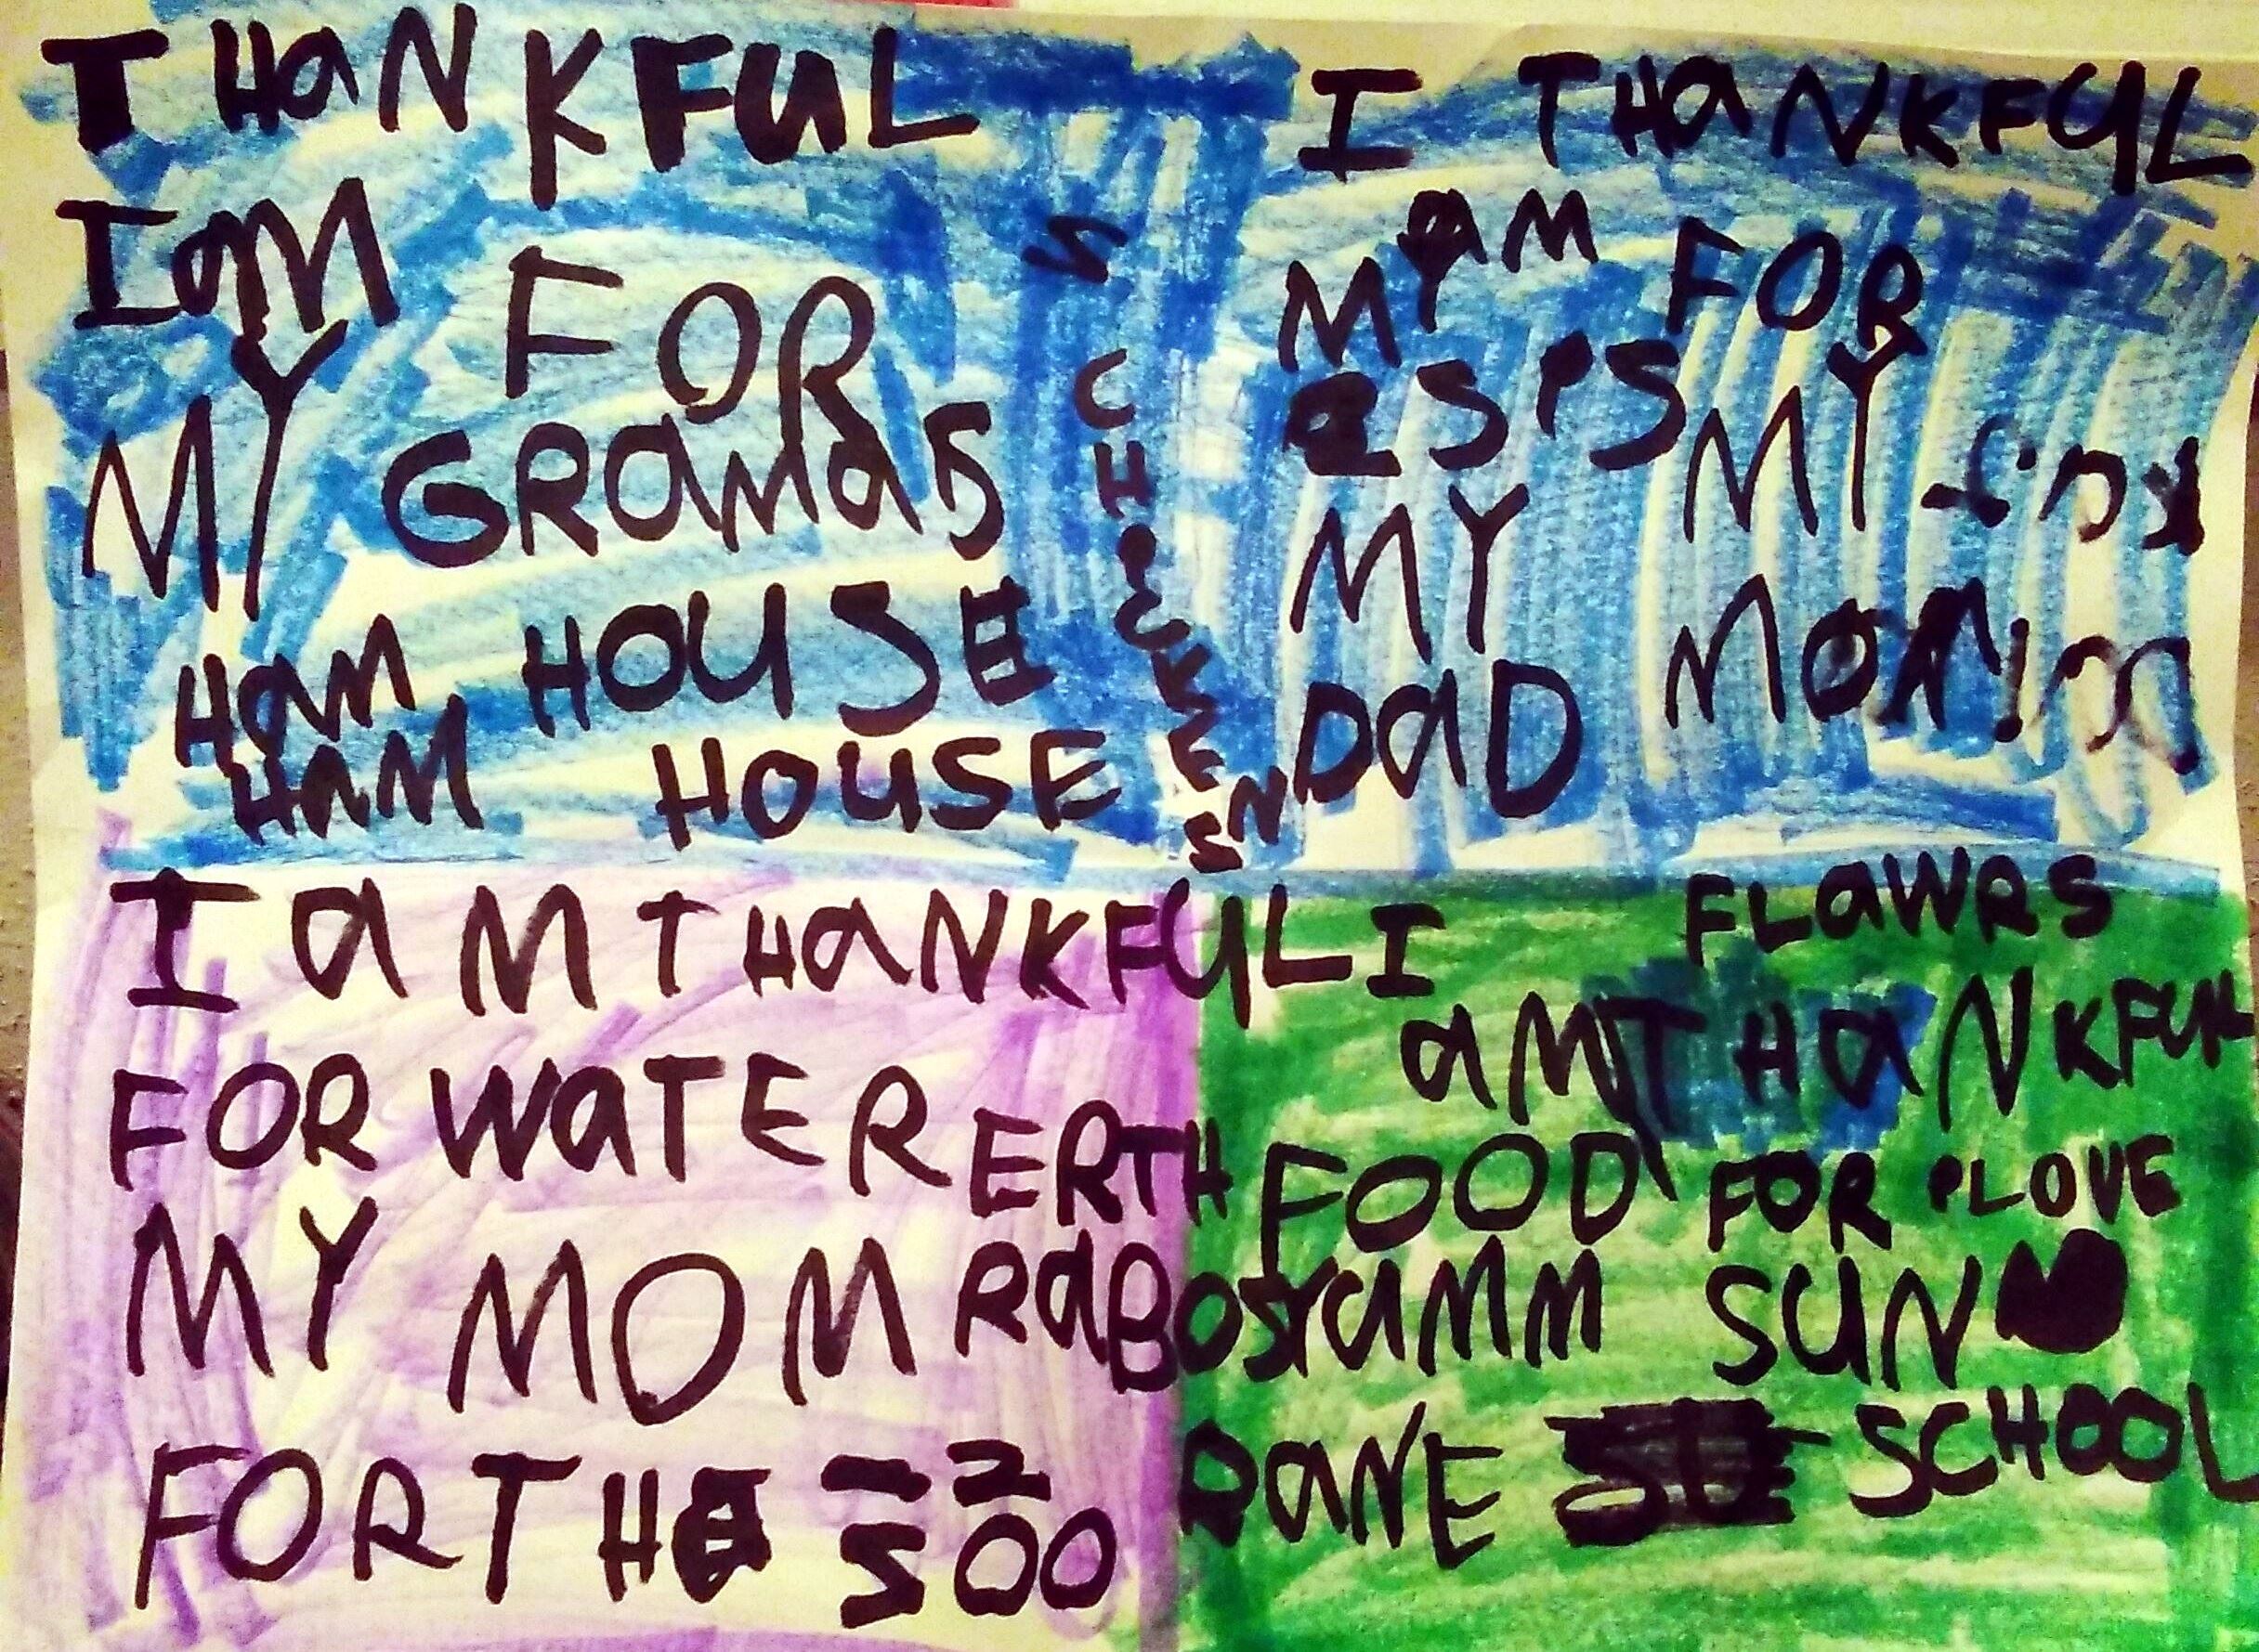 THaNKFUL
I aM FOR
MY GRaMaS
HaM HOUSE
HaM HOUSE
SCH
I THaNKFUL
aM FOR
MY MY
MY
DaD MOM
I aM THaNKFUL
FOR WaTER ERTH
MY MOM RaBOS
FOR THE
ZOO
FLaWRS
I
aM THaNKFUL
FOOD FOR LOVE
YaMM SUN
RaNE SCHOOL